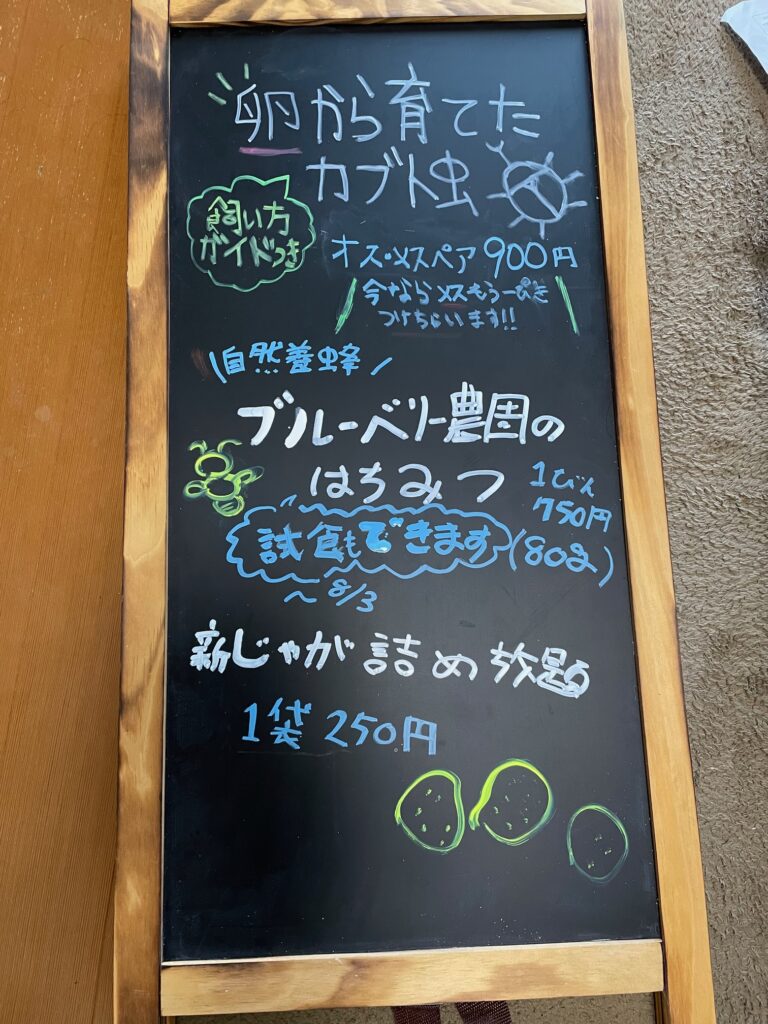 卵から育てた
カブト虫
飼い方
ガイドつき
オス・メスペア 900円
今ならメスもう一ぴき
つけちゃいます!!
自然養蜂
ブルーベリー農園の
はちみつ
1びん
750円
(80g)
試食もできます
～8/3
新じゃが詰め放題
1袋 250円